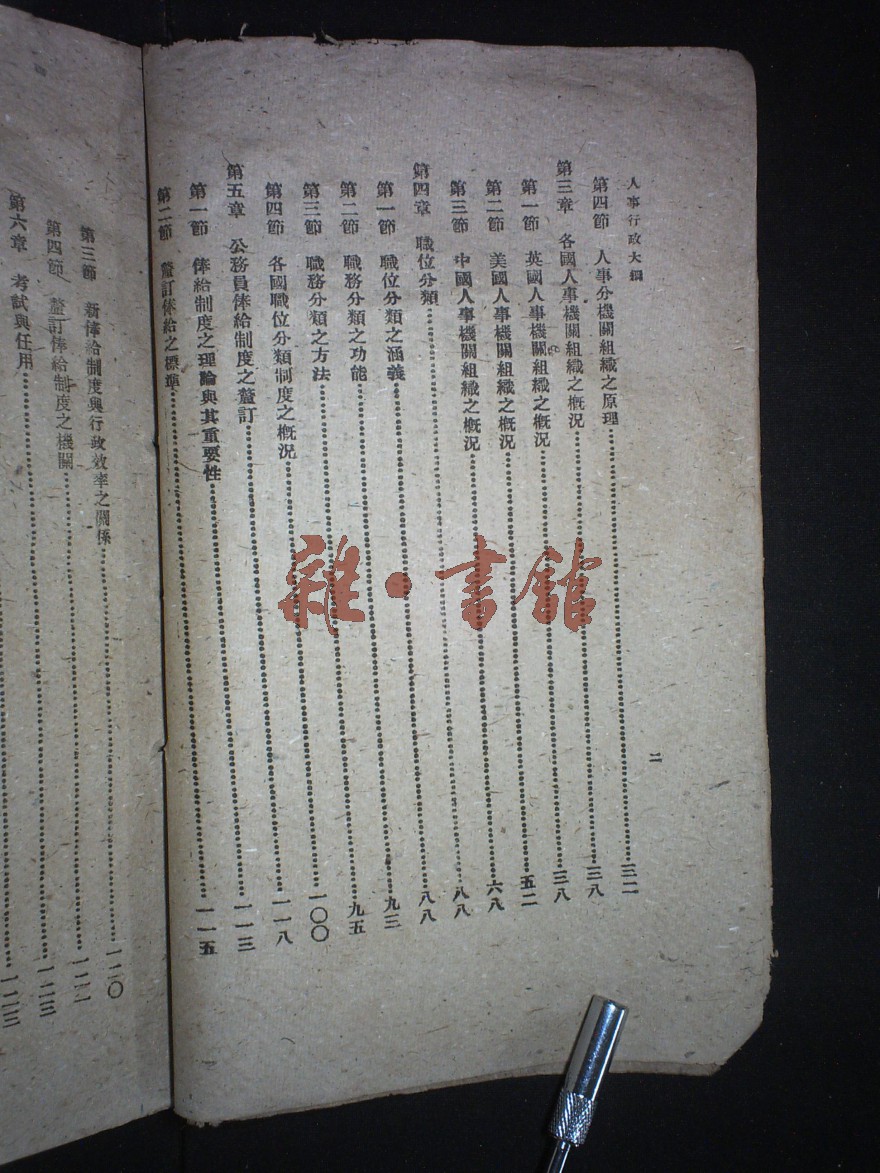 人事行政大綱 二
第四節 人事分機關組織之原理 三二
第三章 各國人事機關組織之概況 三八
第一節 英國人事機關組織之概況 三八
第二節 美國人事機關組織之概況 五二
第三節 中國人事機關組織之概況 六八
第四章 職位分類 八八
第一節 職位分類之涵義 八八
第二節 職務分類之功能 九三
第三節 職務分類之方法 九五
第四節 各國職位分類制度之概況 一〇〇
第五章 公務員俸給制度之釐訂 一一八
第一節 俸給制度之理論與其重要性 一一三
第二節 釐訂俸給之標準 一一五
第三節 新俸給制度與行政效率之關係 一二〇
第四節 釐訂俸給制度之機關 一二二
第六章 考試與任用 一二三
一二三
雜·書館